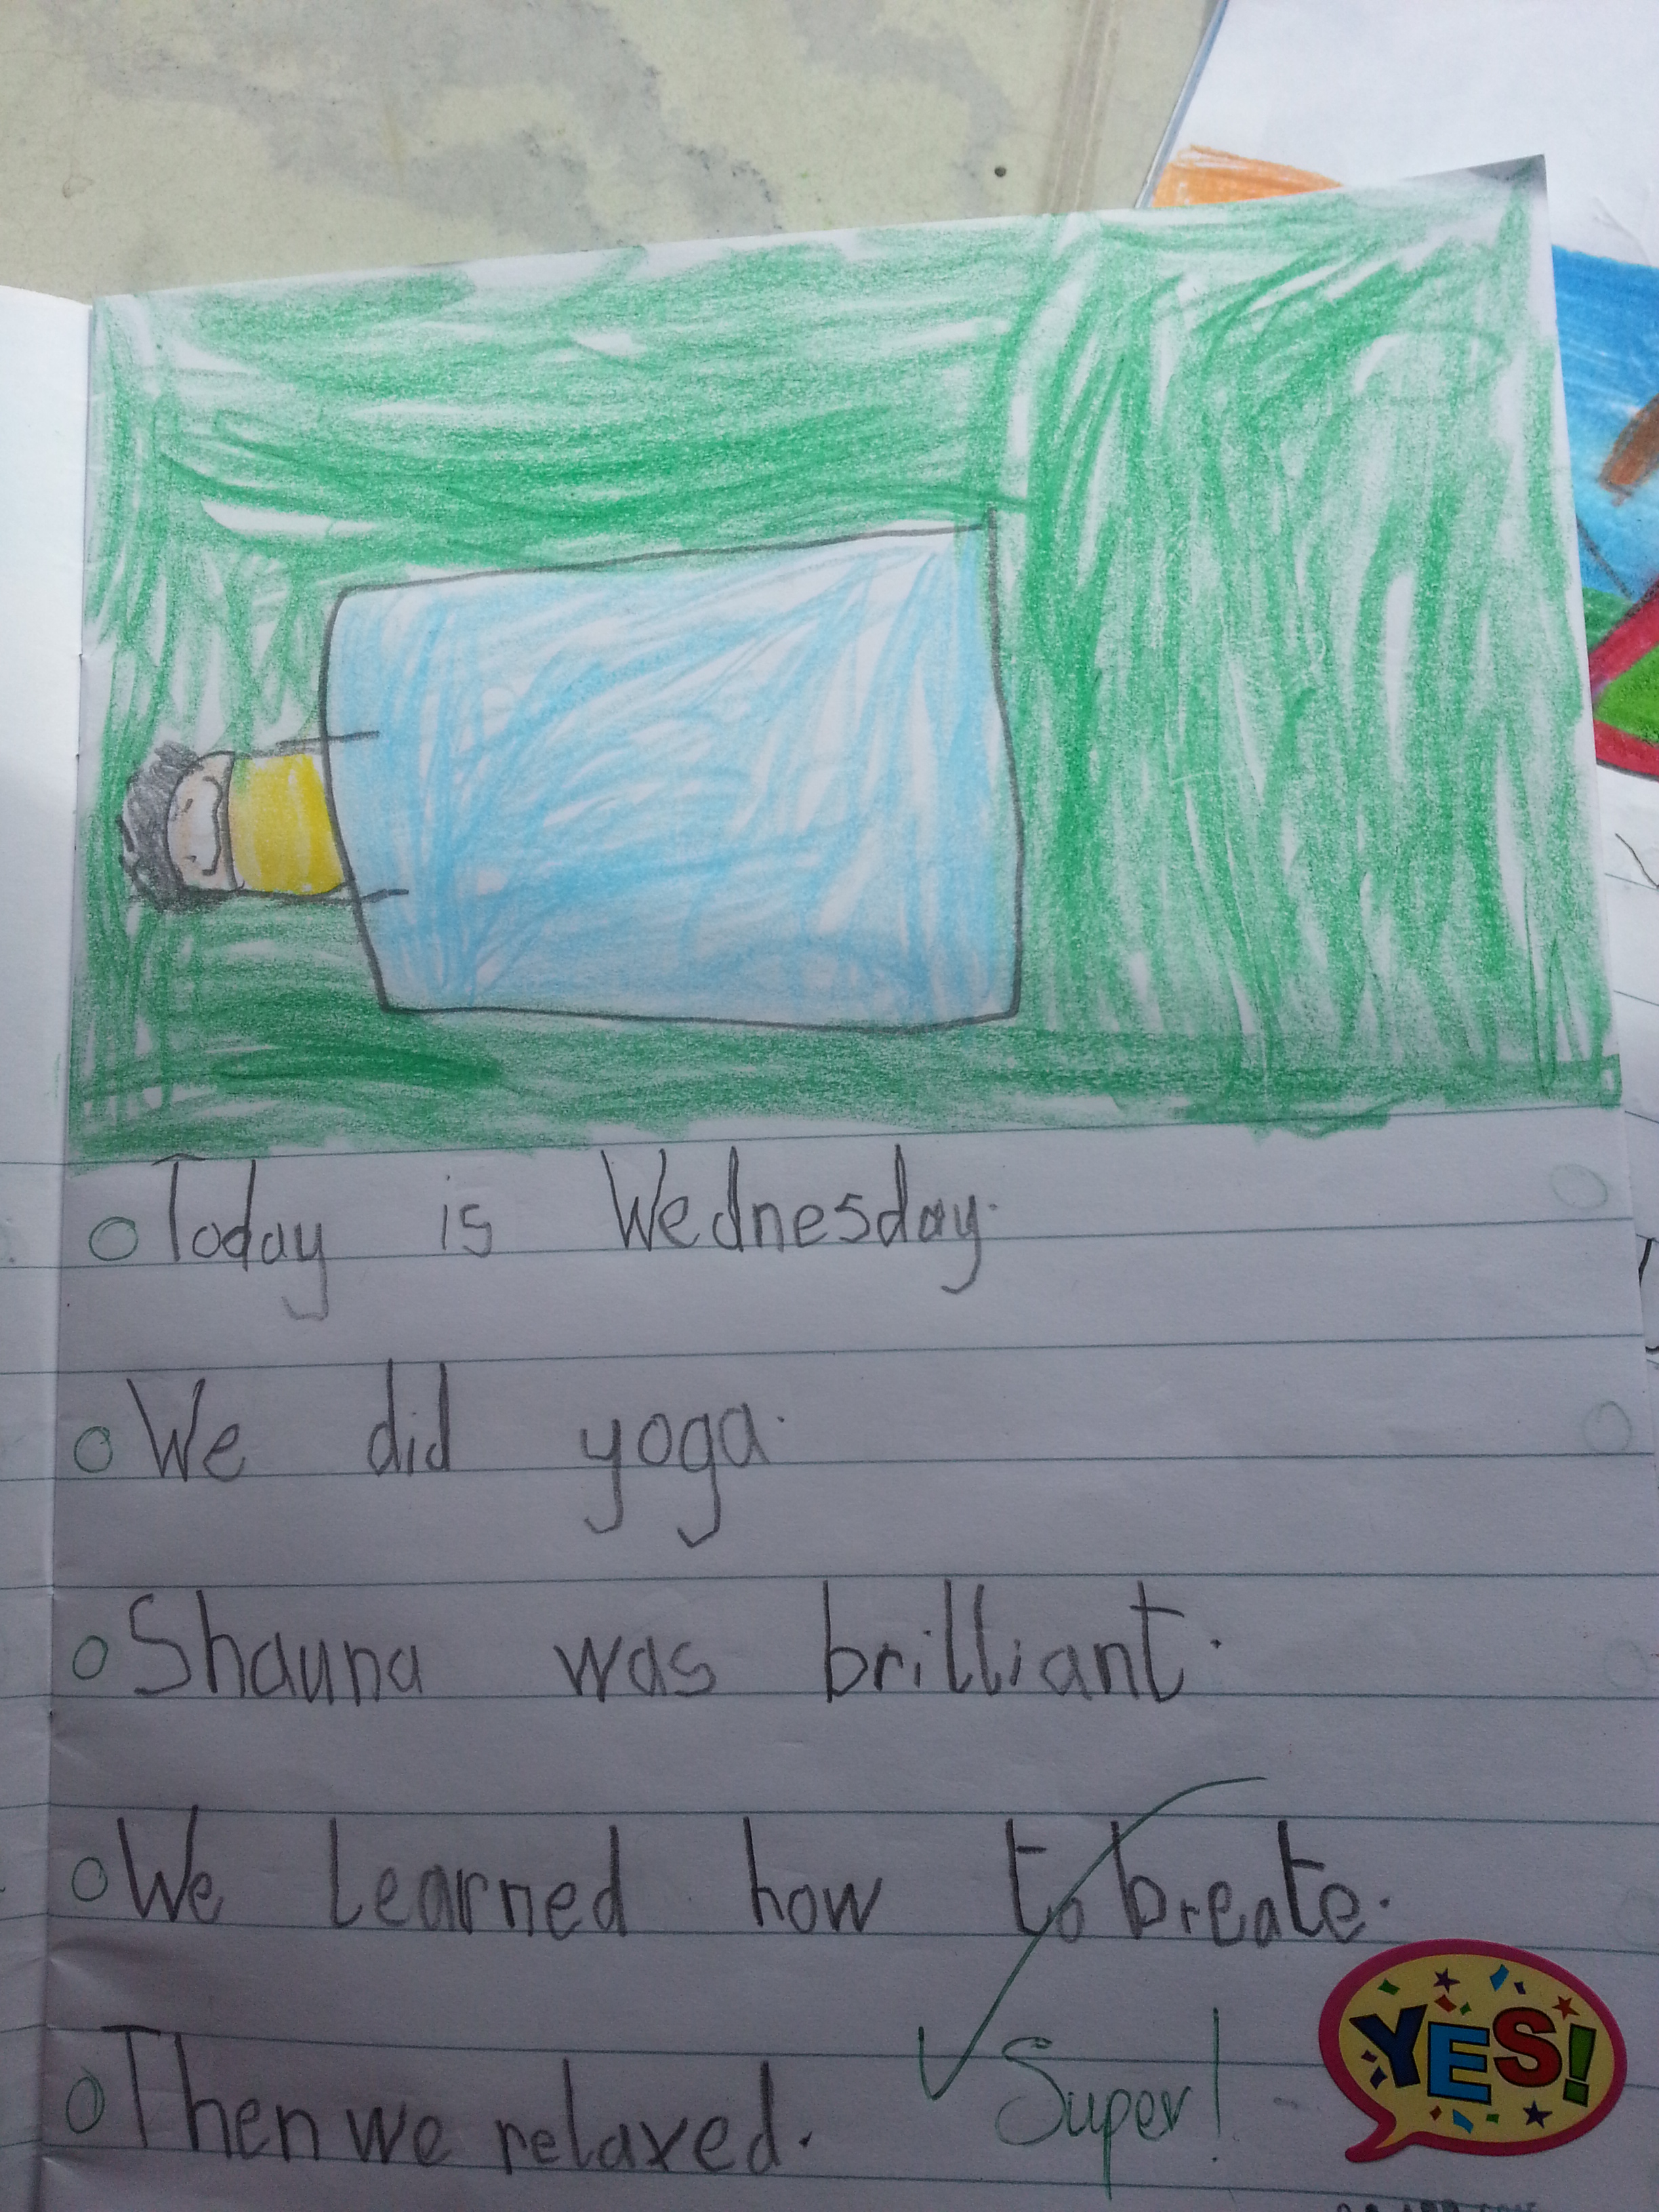 Today is Wednesday.
We did yoga.
Shauna was brilliant.
We learned how to breate.
Then we relaxed.
Super!
YES!